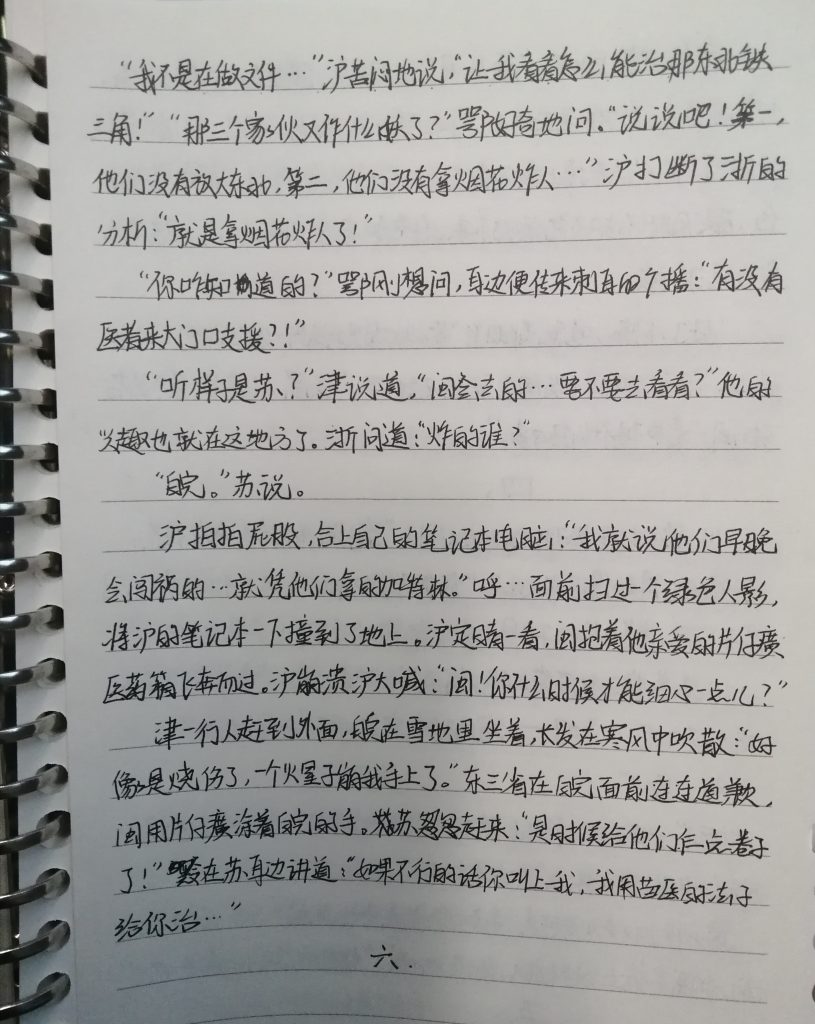 “我不是在做文件…”沪苦闷地说，“让我看看怎么能治那东北铁
三角！”“那三个家伙又作什么妖了？”鄂好奇地问。“说说吧！第一，
他们没有放大东北，第二，他们没有拿烟花炸人…”沪打断了浙的
分析：“就是拿烟花炸人了！”
“你咋知道的？”鄂刚想问，耳边便传来刺耳的广播：“有没有
医者来大门口支援？！”
“听样子是苏？”津说道，“闽会去的…要不要去看看？”他的
兴趣也就在这地方了。浙问道：“炸的谁？”
“皖。”苏说。
沪拍拍屁股，合上自己的笔记本电脑：“我就说他们早晚
会闯祸的…就凭他们拿的加特林。”呼…面前扫过一个绿色人影，
将沪的笔记本一下撞到了地上。沪定睛一看，闽抱着他亲爱的片仔癀
医药箱飞奔而过。沪崩溃沪大喊：“闽！你什么时候才能细心一点儿？”
津一行人赶到外面，皖在雪地里坐着，长发在寒风中吹散：“好
像是烧伤了，一个火星子崩我手上了。”东三省在皖面前连连道歉，
闽用片仔癀涂着皖的手。苏忽忽赶来：“是时候给他们一点卷子
了！”在苏耳边讲道：“如果不行的话你叫上我，我用苗医的法子
给你治…”
六.